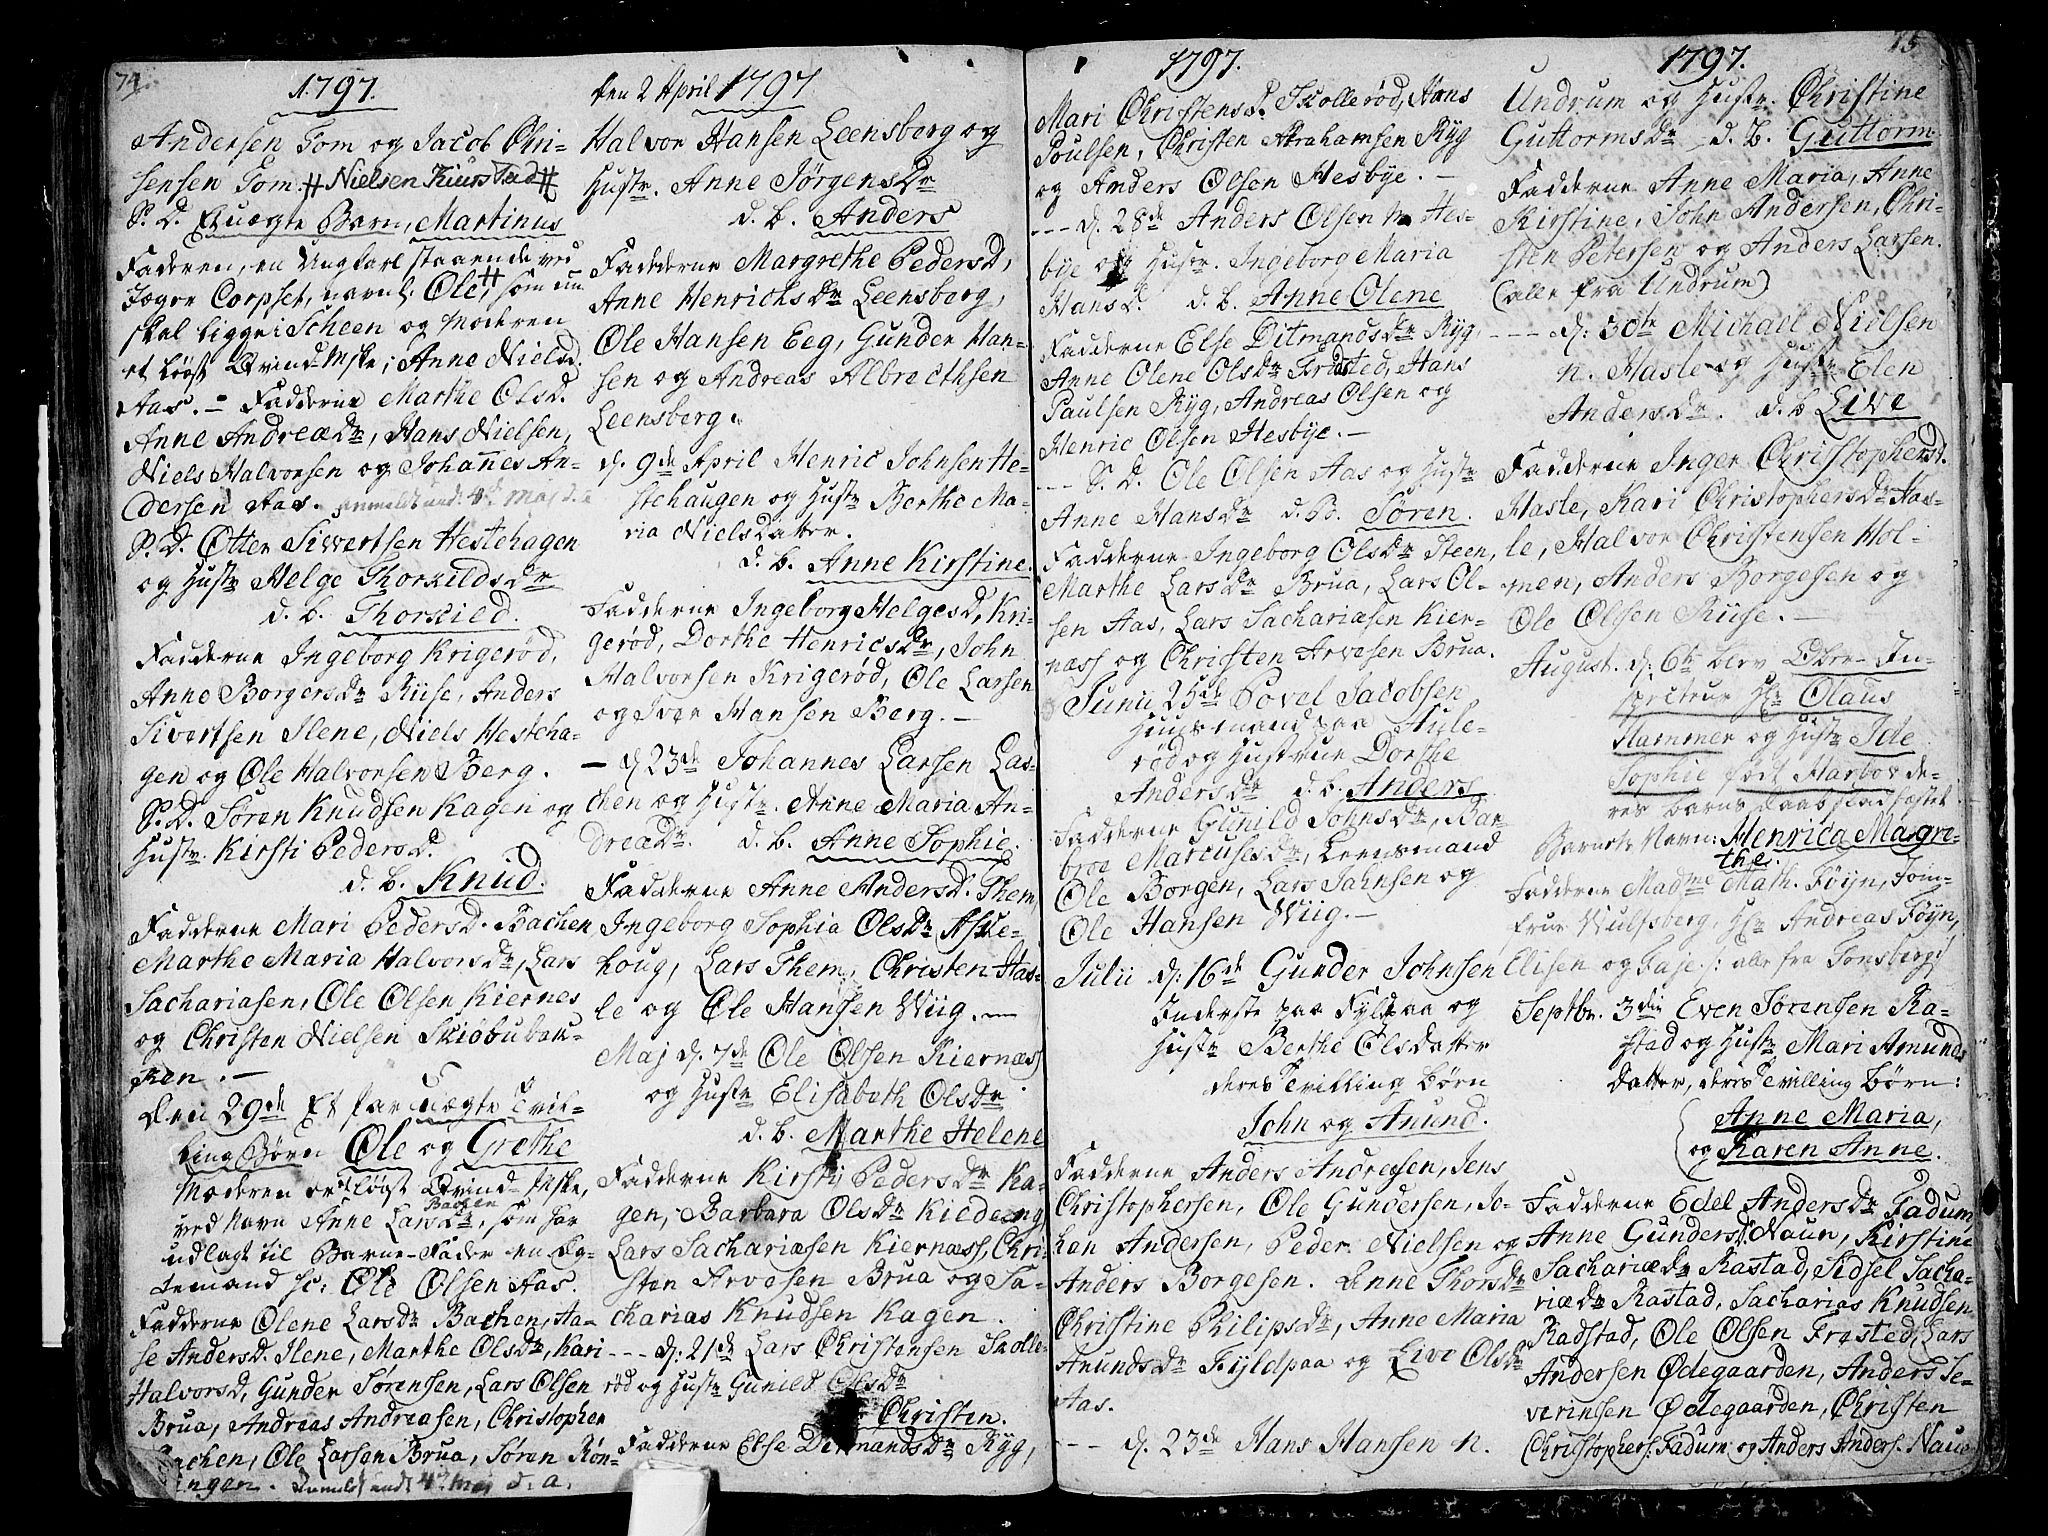 74.
1797.
Andersen Fom og Jacob Chri-
stensen Fom. # Nielsen Kiurstad #
S. D. Et uægte Barn, Martinus
Faderen, en Ungkarl staaende ved
Jæger Corpset, navnl: Ole #, som nu
skal ligge i Scheen og Moderen
et løöst Qvind-Mske, Anne Nielsd.
Aas. – Fadderne Marthe Olsd.
Anne Andreædr, Hans Nielsen,
Niels Halvorsen og Johannes An-
dersen Aas. anmeldt und: 4de Maj d. a
S. D. Otter Siwertsen Hestehagen
og Hustr Helge Thorkildsdr
d. b. Thorkild.
Fadderne Ingeborg Krigerød,
Anne Borgersdr Riise, Anders
Sivertsen Ilene, Niels Hesteha-
gen og Ole Halvorsen Berg.
S. D. Søren Knudsen Kagen og
Hustr. Kirsti Pedersd.
d. b. Knud.
Fadderne Mari Pedersd. Bachen
Marthe Maria Halvorsdr, Lars
Sachariasen, Ole Olsen Kiernes
og Christen Nielsen Skiøbubak-
ken. –
Den 29de Et Par uægte Tvil-
ling Børn Ole og Grethe
Moderen er et løöst Qvind-Mske,
Bachen
ved Navn Anne Larsdr, som har
udlagt til Barne-Fader en Eg-
temand sc: Ole Olsen Aas.
Fadderne Olene Larsdr Bachen, Aa-
se Andersd. Ilene, Marthe Olsdr, Kari
Halvorsd, Gunder Sørensen, Lars Olsen
Brua, Andreas Andreasen, Christopher
Bachen, Ole Larsen Brua, Søren Røn-
ningen. Anmeldt und: 4de Maj d. a.
den 2 April 1797
Halvor Hansen Leensberg og
Hustr. Anne Jørgensdr
d. b. Anders
Fadderne Margrethe Pedersd,
Anne Henrichsdr Leensberg,
Ole Hansen Eeg, Gunder Han-
sen og Andreas Albrecthsen
Leensberg.
d. 9de April Henric Johnsen He-
stehaugen og Hustr Berthe Ma-
ria Nielsdatter.
d. b. Anne Kirstine.
Fadderne Ingeborg Helgesd, Kri-
gerød, Dorthe Henricsdr, John
Halvorsen Krigerød, Ole Larsen
og Iver Hansen Berg. –
– d 23de Johannes Larsen Las-
chen og Hustr. Anne Maria An-
dreadr. d. b. Anne Sophie.
Fadderne Anne Andersd. Them,
Ingeborg Sophia Olsdr Aske-
houg, Lars Them, Christen Has-
le og Ole Hansen Wiig. –
Maj d. 7de Ole Olsen Kiernæss
og Hustr Elisabeth Olsdr
d. b. Marthe Helene
Fadderne Kirsty Pedersdr Ka-
gen, Barbara Olsdr Kildeeng
Lars Sachariasen Kiernæss, Chri-
sten Arvesen Brua og Sa-
charias Knudsen Kagen.
--- d: 21de Lars Christensen Skolle-
rød og Hustr Gunild Olsdr
Christen.
Fadderne Else Ditmandsdr Ryg,
1797.
Mari Christensd. Skollerød, Hans
Poulsen, Christen Abrahamsen Ryg
og Anders Olsen Hesbye. –
--- d. 28de Anders Olsen n. Hes-
bye og Hustr. Ingeborg Maria
Hansd. d. b. Anne Olene
Fadderne Else Ditmandsdr Ryg,
Anne Olene Olsdr Frøsted, Hans
Paulsen Ryg, Andreas Olsen og
Henric Olsen Hesbye. –
--- S. D. Ole Olsen Aas og Hustr
Anne Hansdr d. B. Søren.
Fadderne Ingeborg Olsdr Steen,
Marthe Larsdr Brua, Lars Ol-
sen Aas, Lars Sachariasen Kier-
næss og Christen Arvesen Brua.
Junii 25de Povel Jacobsen
Huusmand paa Hule-
rød og Hustrue Dorthe
Andersdr d. b. Anders
Fadderne Gunild Johnsdr, Bar-
broe Marcusesdr, Leensmand
Ole Borgen, Lars Johnsen og
Ole Hansen Wiig. –
Julii d: 16de Gunder Johnsen
Inderste paa Fyldpaa og
Hustr Berthe Olsdatter
deres Tvilling Børn
John og Anund.
Fadderne Anders Andresen, Jens
Christophersen, Ole Gundersen, Jo-
han Andersen, Peder Nielsen og
Anders Borgesen. Lenne Thorsdr
Christine Philipsdr, Anne Maria
Anundsdr Fyldpaa og Live Olsdr
Aas.
--- d. 23de Hans Hansen n.
75
1797.
Undrum og Hustr. Christine
Guttormsdr d. b. Guttorm.
Fadderne Anne Maria, Anne
Kirstine, John Andersen, Chri-
sten Petersen og Anders Larsen.
(alle fra Undrum)
--- d: 30te Michael Nielsen
n. Hasle og Hustr Elen
Andersdr. d. b Live
Fadderne Inger Christophersd.
Hasle, Kari Christophersdr Has-
le, Halvor Christensen Hol-
men, Anders Borgesen og
Ole Olsen Riise. –
August. d: 6te blev Obre-In-
specteur Hr Olaus
Hammer og Hustr Ide
Sophie født Harboe de-
res barns daab stadfæstet
Barnets Navn: Henrica Magre-
the.
Fadderne Madme Math. Føyn, Jom-
frue Wulfsberg, Hr Andreas Føyn,
Elisen og Faje (: alle fra Tønsberg)
Septbr. 3die Even Sørensen Ra-
stad og Hustr Mari Amunds
datter, deres Tvilling Børn:
Anne Maria,
og Karen Anne.
Fadderne Edel Andersdr Fadum,
Anne Gundersd. Naur, Kirstine
Sachariædr Rastad, Sidsel Sacha-
riædr Rastad, Sacharias Knudsen
Radstad, Ole Olsen Frøsted, Lars
Andersen Ødegaarden, Anders Se-
verinsen Ødegaarden, Christen
Christophers. Fadum og Anders Anders. Naur